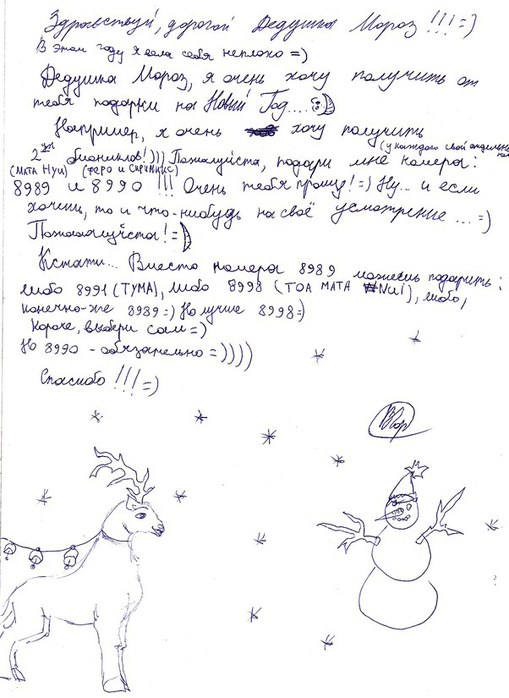 Здравствуй, дорогой Дедушка Мороз!!!=)
В этом году я вела себя неплохо=)
Дедушка Мороз, я очень хочу получить от
тебя подарки на Новый Год....
Например, я очень хочу получить
(у каждого свой отдельный
2ух биониклов!))) Пожалуйста, подари мне номера:
(МАТА НУИ) (ФЕРО И СКИРМИКС)
8989 и 8990 !!! Очень тебя прошу!=) Ну... и если
хочешь, то и что-нибудь на своё усмотрение...=)
Пожааалуйста!=)
Кстати... Вместо номера 8989 можешь подарить:
либо 8991 (ТУМА), либо 8998 (ТОА МАТА Nui), либо,
конечно-же 8989=) Но лучше 8998=)
Короче, выбери сам=)
Но 8990 - обязательно=))))
Спасибо!!!=)